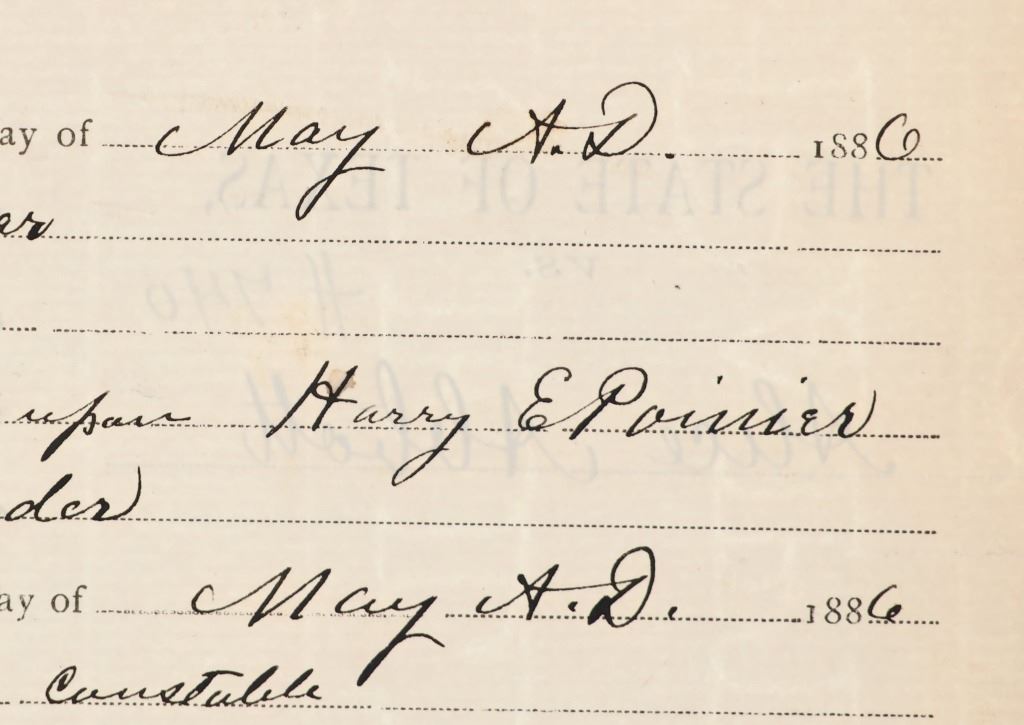 ay of May A.D. 1886
er
upon Harry E Poinier
der
ay of May A.D. 1886
Constable
THE STATE OF TEXAS,
vs.
# 740